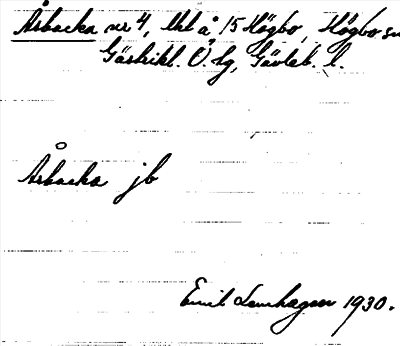 Åsbacka nr 4, lht å 15 Högbo, Högbo sn
Gästrikl. Ö. tg, Gävleb. l.
Åsbacka jb
Emil Lewhagen 1930.